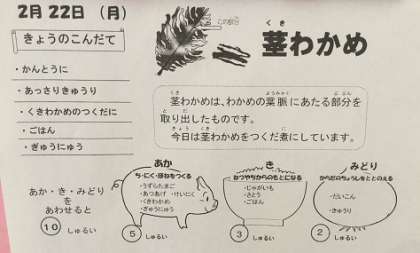 2月 22日 （月）
きょうのこんだて
・かんとうに
・あっさりきゅうり
・くきわかめのつくだに
・ごはん
・ぎゅうにゅう
くき
茎わかめ
くき ようみゃく ぶぶん
茎わかめは、わかめの葉脈にあたる部分を
と だ
取り出したものです。
きょう くき に
今日は茎わかめをつくだ煮にしています。
あか・き・みどり
を
あわせると
10 しゅるい
あか
ち・にく・ほねをつくる
・うずらたまご
・あつあげ ・けいにく
・くきわかめ
・ぎゅうにゅう
5 しゅるい
き
ねつやちからのもとになる
・じゃがいも
・さとう
・ごはん
3 しゅるい
みどり
からだのちょうしをととのえる
・だいこん
・きゅうり
2 しゅるい